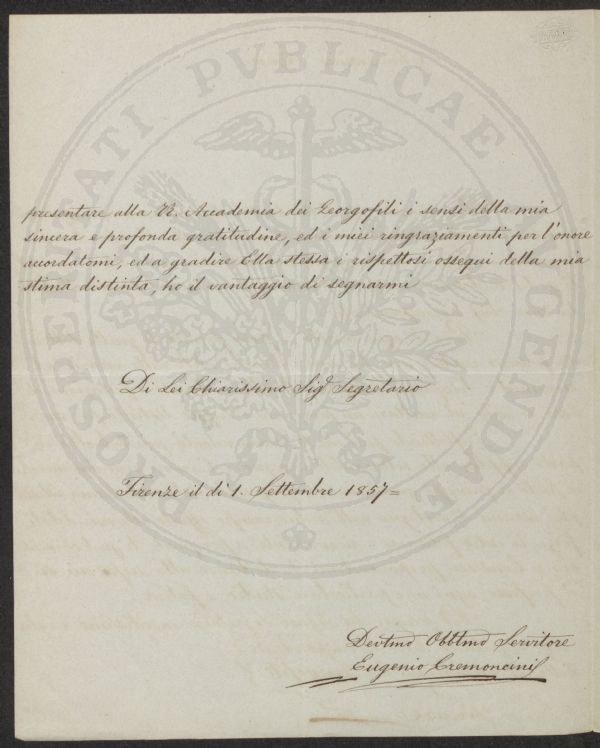 PROSPERITATI PVBLICAE AVGENDAE
presentare alla R. Accademia dei Georgofili i sensi della mia
sincera e profonda gratitudine, ed i miei ringraziamenti per l'onore
accordatomi, ed a gradire Ella stessa i rispettosi ossequi della mia
stima distinta, ho il vantaggio di segnarmi
Di Lei Chiarissimo Sig.r Segretario
Firenze il dì 1. Settembre 1857=
Devtmo Obbtmo Servitore
Eugenio Cremoncini